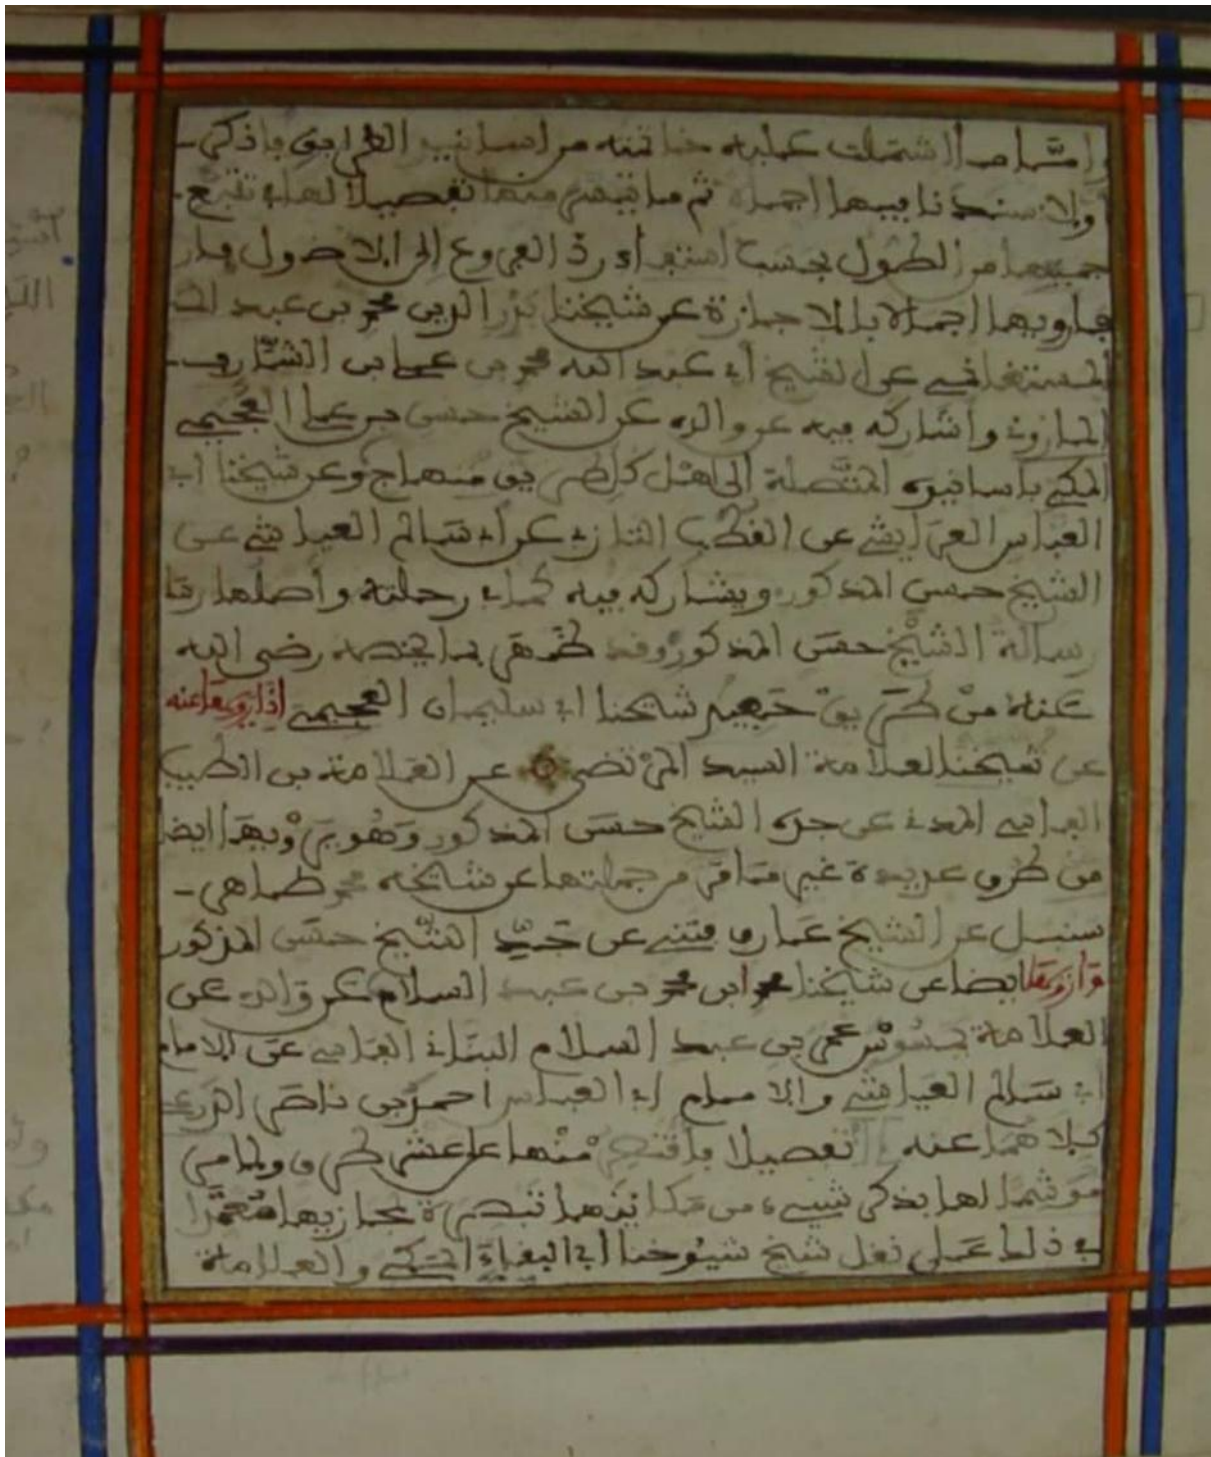 وأما ما اشتملت عليه خاتمته من أسانيد الطرايق فاذكر
أولا سندنا فيها اجمالا ثم ما تيسر منها تفصيلا لما في تتبع
جميعها من الطول بحسب استقراء رد الفروع الى الاصول
فأرويها اجمالا بالاجازة عن شيخنا بدر الدين محمد بن عبد الله
المستغانمي عن الشيخ أبي عبد الله محمد بن علي بن الشارف
المازوني وأشاركه فيه عن والده عن الشيخ حسن بن علي العجيمي
المكي بأسانيده المتصلة الى أهل كل طريق ومنهاج وعن شيخنا أبي
العباس العرايشي عن القطب التازي عن أبي سالم العياشي عن
الشيخ حسن المذكور ويشاركه فيه كما في رحلته وأصلها
رسالة الشيخ حسن المذكور وقد ظهر بما يخصه رضي الله
عنه من طريق حفيد شيخنا أبي سليمان العجيمي
عن شيخنا العلامة السيد المرتضى عن العلامة بن الطيب
الفاسي المدني عن جده الشيخ حسن المذكور وهو يرويها أيضا
من طرق عديدة غير ما مر من جملتها عن شيخه محمد طاهر
سنبل عن الشيخ عارف فتني عن جد الشيخ حسن المذكور
وأرويها أيضا عن شيخنا محمد ابن محمد بن عبد السلام عن والده عن
العلامة عمر بن عبد السلام البناني الفاسي عن الامام
أبي سالم العياشي والامام أبي العباس احمد بن ناصر الدرعي
كلاهما عنه تفصيلا فأقتصر منها على عشر طرق
موشحا لها بذكر شيء من تبصرة
في ذلك على نقل شيخ شيوخنا أبي البقاء المكي والعلامة